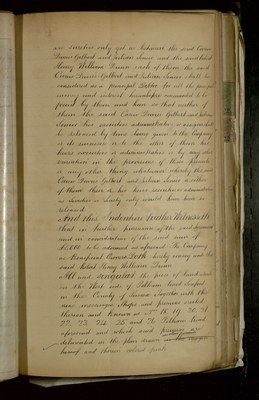 are sureties only yet as between the said Carew
Davies Gilbert and Antonio Simao and the said Robert
Henry William Dunn each of them the said
Carew Davies Gilbert and Antonio Simao shall be
considered as a principal Debtor for all the principal
money and interest hereinafter covenanted to be
paid by them and him so that neither of
them the said Carew Davies Gilbert and Antonio
Simao his executors administrators or assigns shall
be released by time being given to the Company
or its successors or to the other of them his
heirs executors or administrators or by any other
variation in the provisions of these presents
or any other thing whatsoever whereby the said
Carew Davies Gilbert and Antonio Simao or either
of them their or his heirs executors or administrators
as sureties or surety only would have been so
released
And this Indenture further Witnesseth
that in further pursuance of the said
and in consideration of the said sum of
to be advanced as aforesaid The Company
as Beneficial Owners Doth hereby convey unto the
said Robert Henry William Dunn
All and singular the piece of land situate
on the West side of Pelham Road Seaford
in the County of Sussex together with the
new messuages Shops and premises erected
thereon and known as Nos 18 19 20 21
22, 23, 24, 25 and 26 Pelham Road
aforesaid and which said premises are
delineated in the plan drawn in the margin
hereof and thereon colored pink